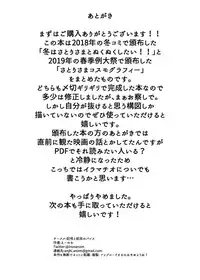 あとがき
まずはご購入ありがとうございます!!
この本は2018年の冬コミで頒布した
「冬はさとりさまとぬくぬくしたい!!」と
2019年の春季例大祭で頒布した
「さとりさまコスモグラフィー」
をまとめたものです。
どちらも〆切ギリギリで完成した本なので
多少は修正しましたが、まぁお察しで。
しかし自分が抜けると思う構図しか
描いていないのでぜひ使っていただけると
嬉しいです。
頒布した本の方のあとがきでは
直前に観た映画の話とかしてたんですが
PDFでそれ読みたい人いる?
と冷静になったため
こっちではイラマチオについても
書こうかと思いますが…
やっぱりやめました。
次の本も手に取っていただけると
嬉しいです!